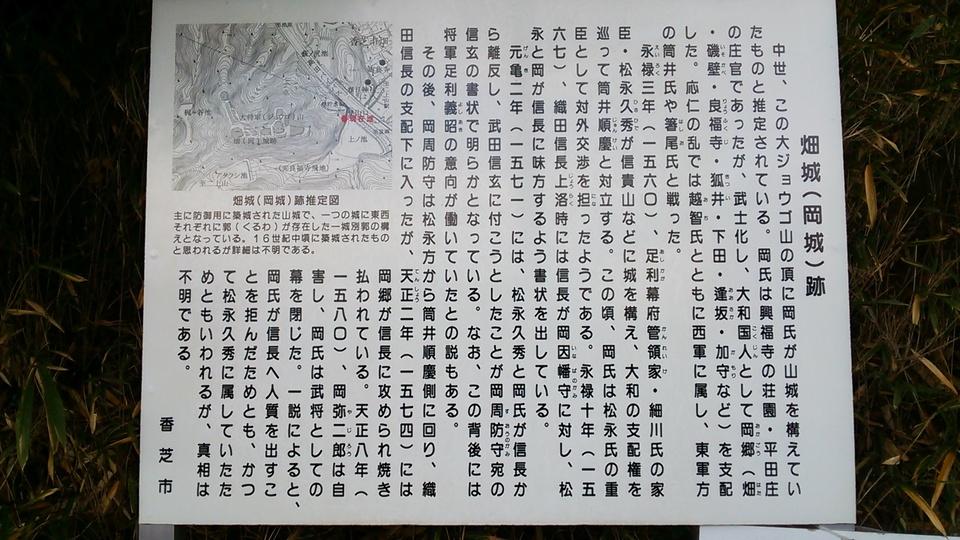 畑城（岡城）跡
中世、この大ジョウゴ山の頂に岡氏が山城を構えてい
たものと推定されている。岡氏は興福寺の荘園・平田庄
の庄官であったが、武士化し、大和国人として岡郷（畑
・磯壁・良福寺・狐井・下田・逢坂・加守など）を支配
した。応仁の乱では越智氏とともに西軍に属し、東軍方
の筒井氏や箸尾氏と戦った。
永禄三年（一五六〇）、足利幕府管領家・細川氏の家
臣・松永久秀が信貴山などに城を構え、大和の支配権を
巡って筒井順慶と対立する。この頃、岡氏は松永氏の重
臣として対外交渉を担ったようである。永禄十年（一五
六七）、織田信長上洛時には信長が岡因幡守に対し、松
永と岡が信長に味方するよう書状を出している。
元亀二年（一五七一）には、松永久秀と岡氏が信長か
ら離反し、武田信玄に付こうとしたことが岡周防守宛の
信玄の書状で明らかとなっている。なお、この背後には
将軍足利義昭の意向が働いていたとの説もある。
その後、岡周防守は松永方から筒井順慶側に回り、織
田信長の支配下に入ったが、天正二年（一五七四）には
岡郷が信長に攻められ焼き
払われている。天正八年（
一五八〇）、岡弥二郎は自
害し、岡氏は武将としての
幕を閉じた。一説によると、
岡氏が信長へ人質を出すこ
とを拒んだためとも、かつ
て松永久秀に属していたた
めともいわれるが、真相は
不明である。
香芝市
畑城（岡城）跡推定図
主に防御用に築城された山城で、一つの城に東西
それぞれに郭（くるわ）が存在した一城別郭の構
えとなっている。１６世紀中頃に築城されたもの
と思われるが詳細は不明である。
上ノ池